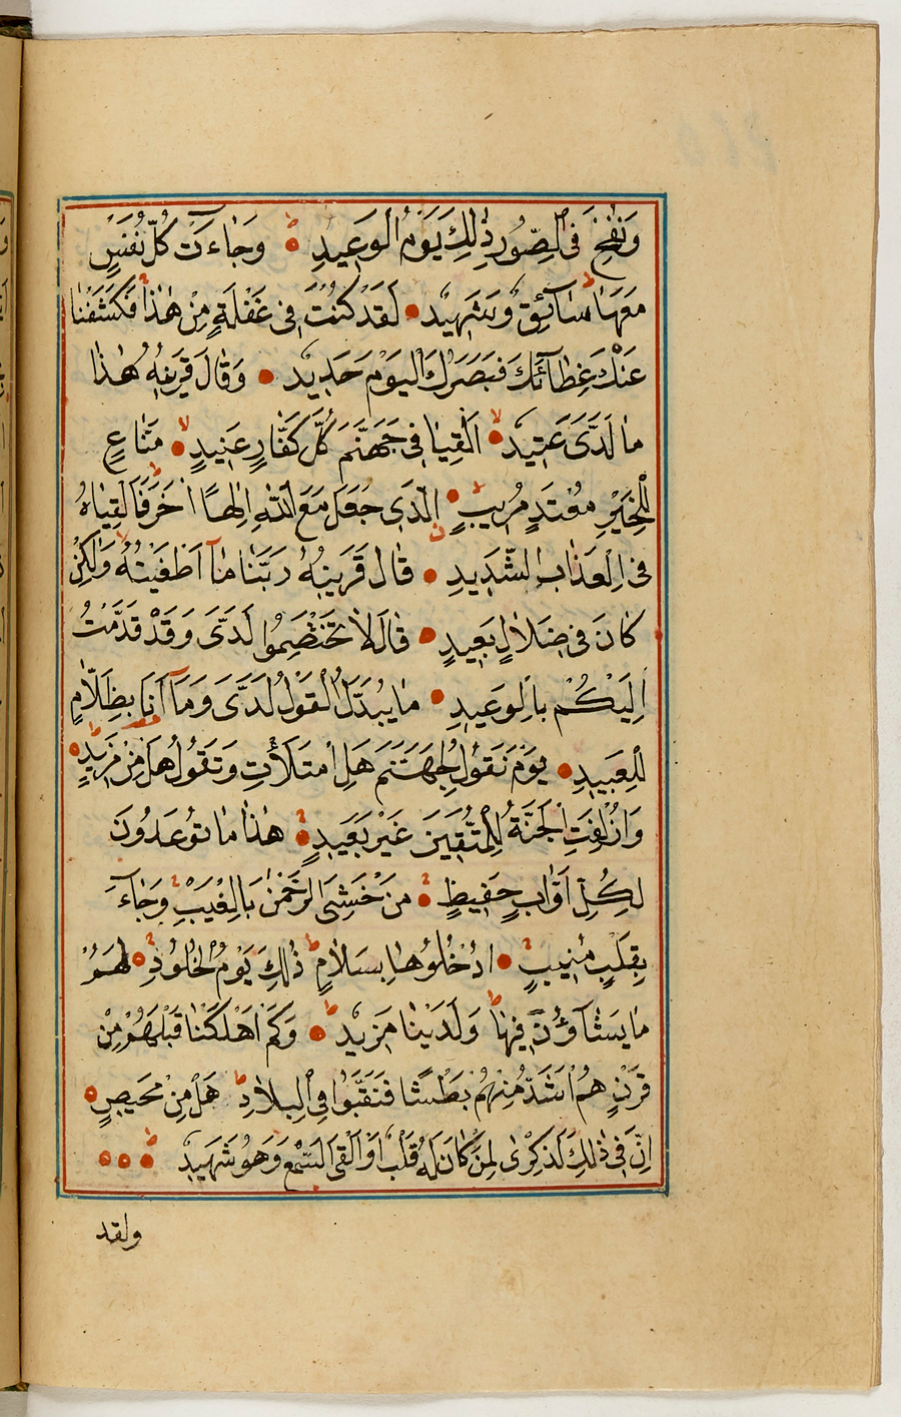 وَنُفِخَ فِي الصُّورِ ذٰلِكَ يَوْمُ الْوَعِيدِ وَجَاءَتْ كُلُّ نَفْسٍ
مَعَهَا سَائِقٌ وَشَهِيدٌ لَقَدْ كُنْتَ فِي غَفْلَةٍ مِنْ هٰذَا فَكَشَفْنَا
عَنْكَ غِطَآئَكَ فَبَصَرُكَ الْيَوْمَ حَدِيدٌ وَقَالَ قَرِينُهُ هٰذَا
مَا لَدَىَّ عَتِيدٌ اَلْقِيَا فِي جَهَنَّمَ كُلَّ كَفَّارٍ عَنِيدٍ مَنَّاعٍ
لِلْخَيْرِ مُعْتَدٍ مُرِيبٍ الَّذِي جَعَلَ مَعَ اللّٰهِ اِلٰهًا اٰخَرَ فَاَلْقِيَاهُ
فِي الْعَذَابِ الشَّدِيدِ قَالَ قَرِينُهُ رَبَّنَا مَآ اَطْغَيْتُهُ وَلٰكِنْ
كَانَ فِي ضَلَالٍ بَعِيدٍ قَالَ لَا تَخْتَصِمُوا لَدَىَّ وَقَدْ قَدَّمْتُ
اِلَيْكُمْ بِالْوَعِيدِ مَا يُبَدَّلُ الْقَوْلُ لَدَىَّ وَمَآ اَنَا بِظَلَّامٍ
لِلْعَبِيدِ يَوْمَ نَقُولُ لِجَهَنَّمَ هَلِ امْتَلَأْتِ وَتَقُولُ هَلْ مِنْ مَزِيدٍ
وَاُزْلِفَتِ الْجَنَّةُ لِلْمُتَّقِينَ غَيْرَ بَعِيدٍ هٰذَا مَا تُوعَدُونَ
لِكُلِّ اَوَّابٍ حَفِيظٍ مَنْ خَشِىَ الرَّحْمٰنَ بِالْغَيْبِ وَجَآءَ
بِقَلْبٍ مُنِيبٍ ادْخُلُوهَا بِسَلَامٍ ذٰلِكَ يَوْمُ الْخُلُودِ لَهُمْ
مَا يَشَآؤُنَ فِيهَا وَلَدَيْنَا مَزِيدٌ وَكَمْ اَهْلَكْنَا قَبْلَهُمْ مِنْ
قَرْنٍ هُمْ اَشَدُّ مِنْهُمْ بَطْشًا فَنَقَّبُوا فِي الْبِلَادِ هَلْ مِنْ مَحِيصٍ
اِنَّ فِي ذٰلِكَ لَذِكْرٰى لِمَنْ كَانَ لَهُ قَلْبٌ اَوْ اَلْقَى السَّمْعَ وَهُوَ شَهِيدٌ
ولقد